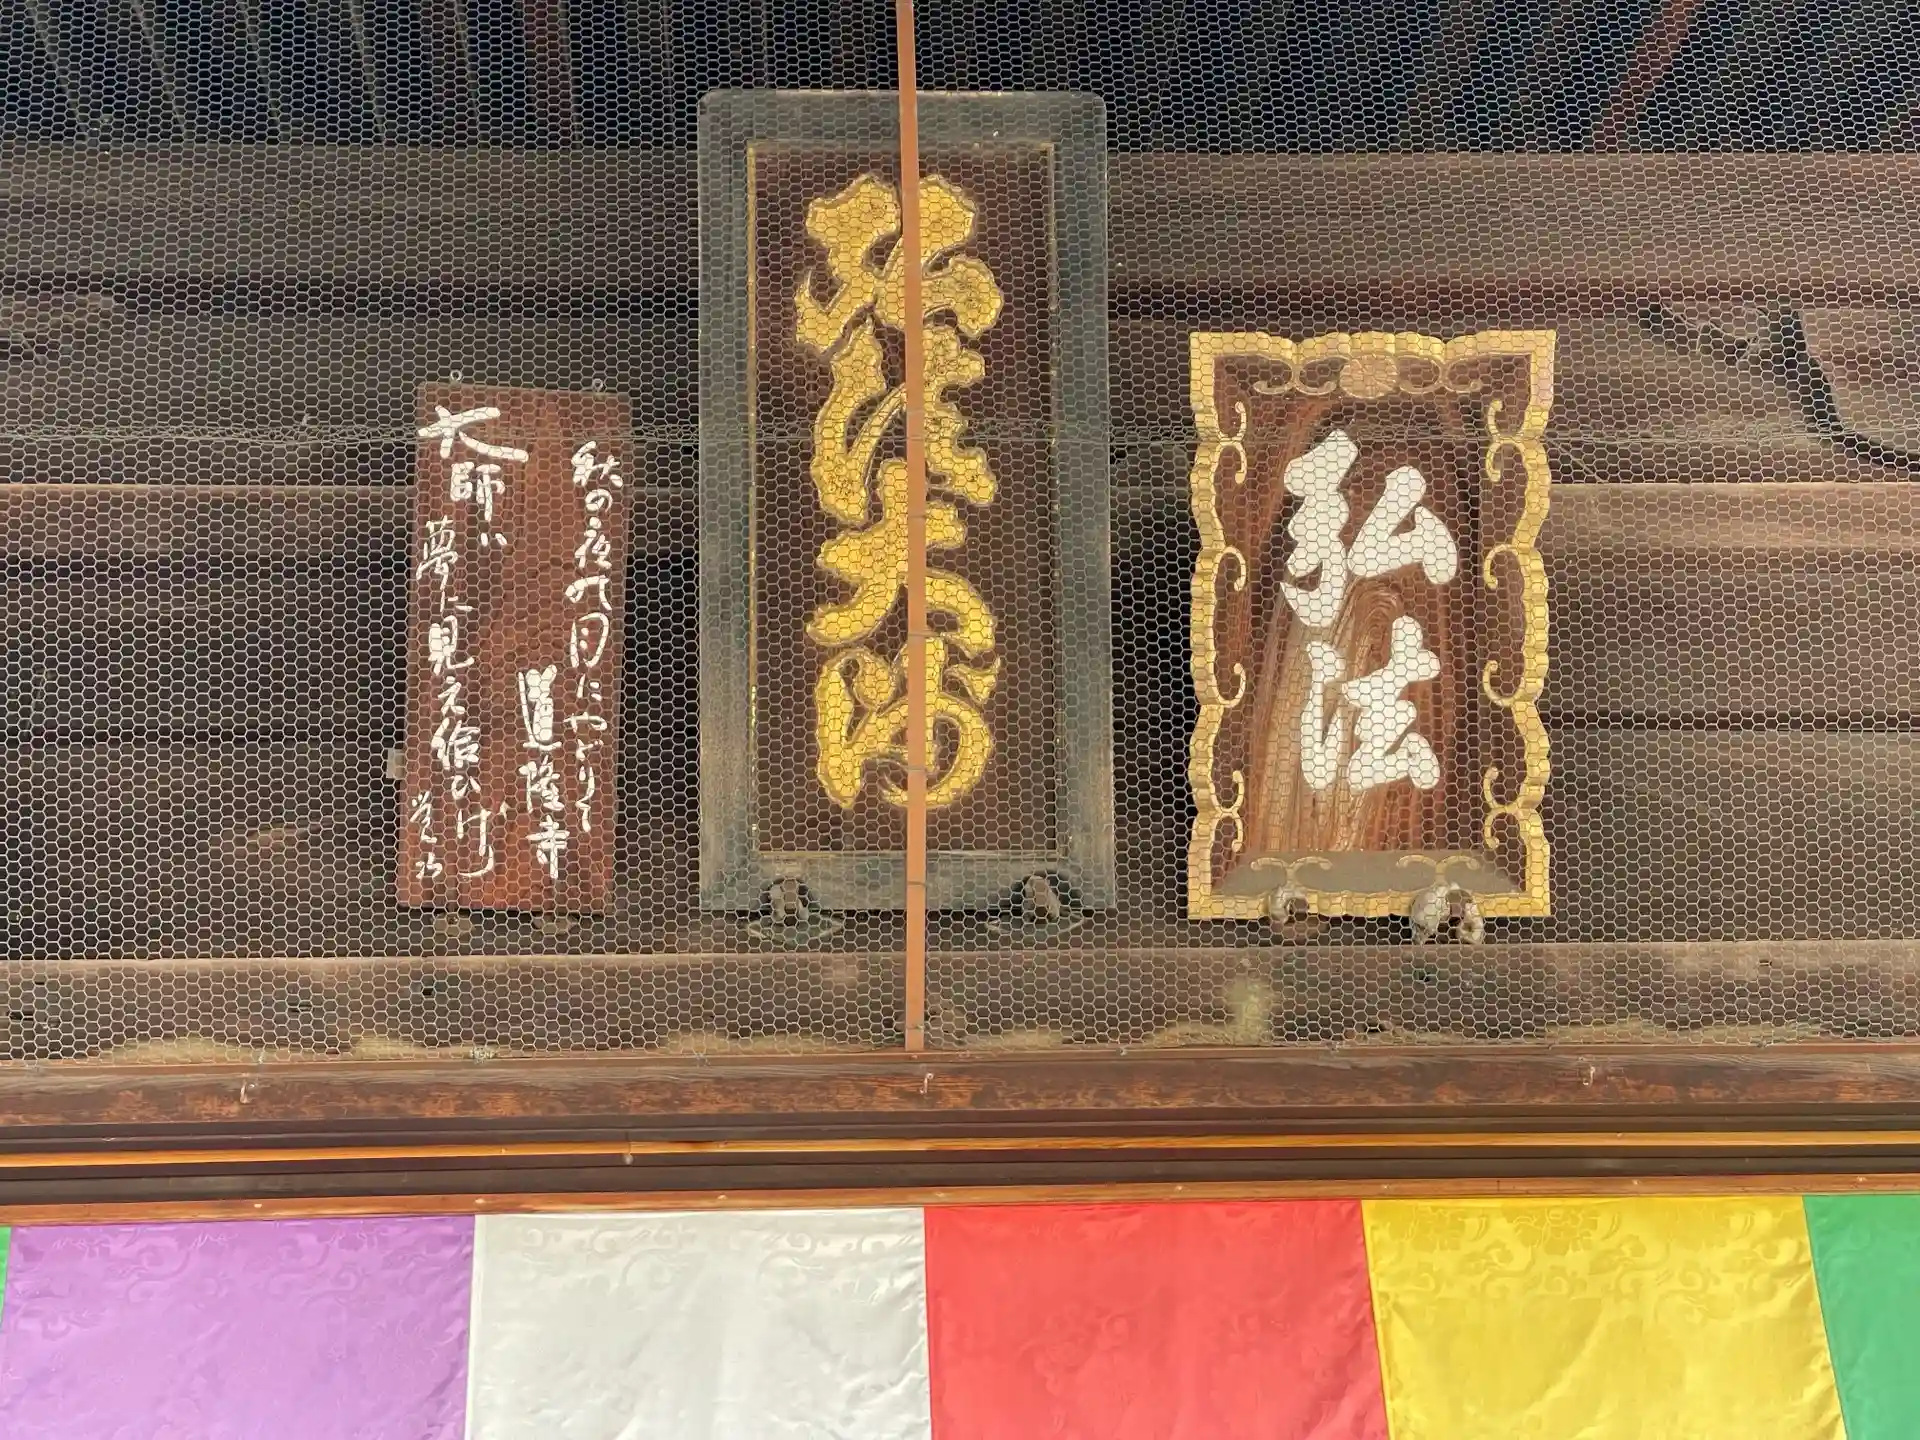 弘法
弘法大師
秋の夜の月にやどりて
道隆寺
大師は
夢に見え給ひけり